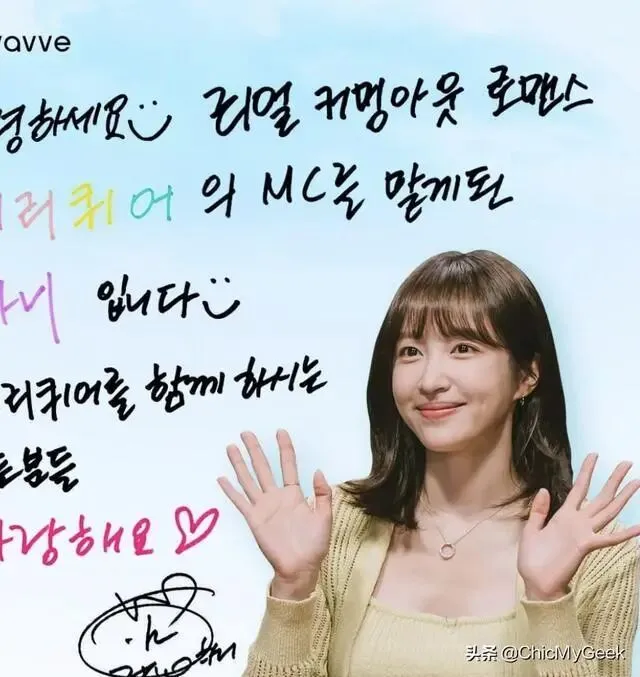 wavve
녕하세요 리얼 커밍아웃 로맨스
리퀴어의 MC를 맡게된
니 입니다
리퀴어를 함께 하시는
봄들
랑해요♡
하니
头条 @ChicMyGeek